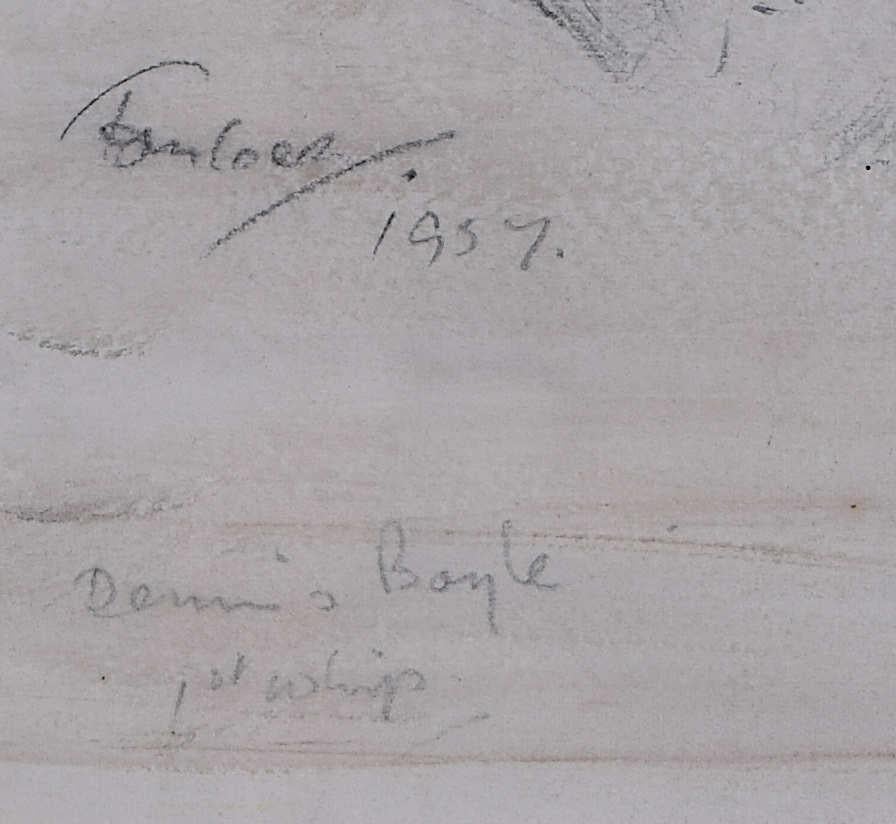 1957.
Dennis Boyle
1st whip